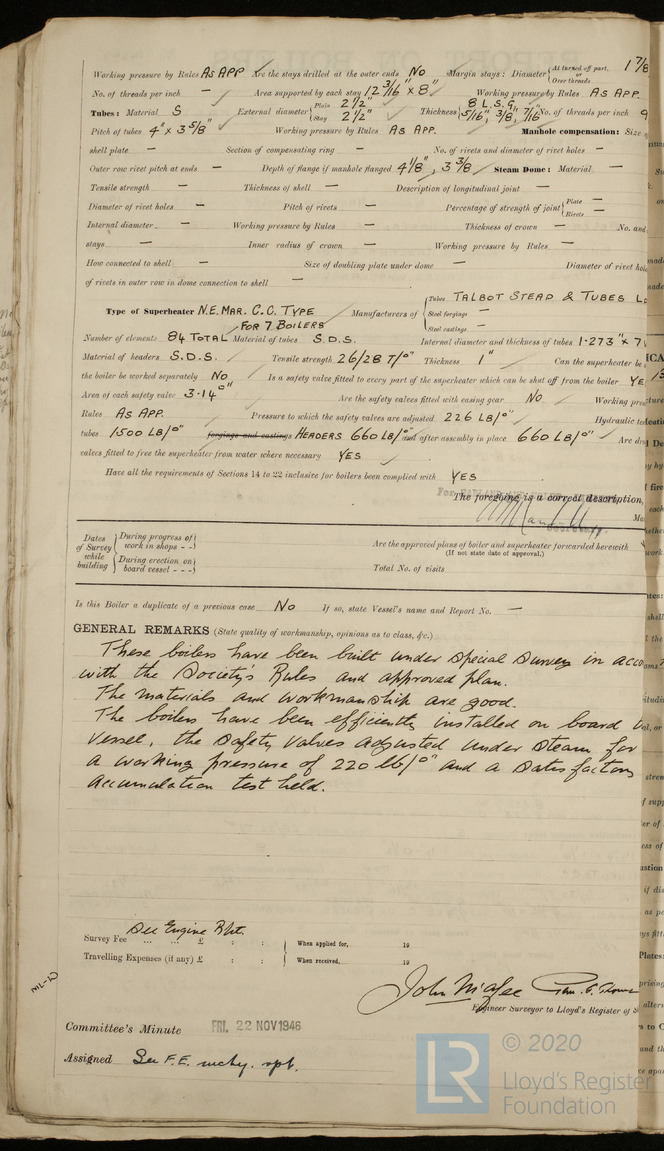 Working pressure by Rules AS APP Are the stays drilled at the outer ends No Margin stays: Diameter { At turned off part, or Over threads 1 7/8
No. of threads per inch — Area supported by each stay 12 3/16" × 8" Working pressure by Rules AS APP.
Tubes: Material S External diameter { Plain 2 1/2" Stay 2 1/2" Thickness { 8 L.S.G. 5/16", 3/8", 7/16" No. of threads per inch 9
Pitch of tubes 4" × 3 5/8" Working pressure by Rules AS APP. Manhole compensation: Size
shell plate — Section of compensating ring — No. of rivets and diameter of rivet holes —
Outer row rivet pitch at ends — Depth of flange if manhole flanged 4 1/8", 3 3/8 Steam Dome: Material —
Tensile strength — Thickness of shell — Description of longitudinal joint —
Diameter of rivet holes — Pitch of rivets — Percentage of strength of joint { Plate — Rivets —
Internal diameter — Working pressure by Rules — Thickness of crown — No. and
stays — Inner radius of crown — Working pressure by Rules —
How connected to shell — Size of doubling plate under dome — Diameter of rivet hol
of rivets in outer row in dome connection to shell —
Type of Superheater N.E. MAR. C.C. TYPE FOR 7 BOILERS Manufacturers of { Tubes TALBOT STEAD & TUBES L Steel forgings — Steel castings —
Number of elements 84 TOTAL Material of tubes S.D.S. Internal diameter and thickness of tubes 1·273" × 7
Material of headers S.D.S. Tensile strength 26/28 T/□" Thickness 1" Can the superheater be
the boiler be worked separately No Is a safety valve fitted to every part of the superheater which can be shut off from the boiler YE
Area of each safety valve 3·14 □" Are the safety valves fitted with easing gear No Working pre
Rules AS APP. Pressure to which the safety valves are adjusted 226 LB/□" Hydraulic te
tubes 1500 LB/□" forgings and castings HEADERS 660 LB/□" and after assembly in place 660 LB/□" Are dr
valves fitted to free the superheater from water where necessary YES
Have all the requirements of Sections 14 to 22 inclusive for boilers been complied with YES
The foregoing is a correct description,
Dates of Survey while building { During progress of work in shops - - } { During erection on board vessel - - - }
Are the approved plans of boiler and superheater forwarded herewith
(If not state date of approval.)
Total No. of visits
Is this Boiler a duplicate of a previous case No If so, state Vessel's name and Report No. —
GENERAL REMARKS (State quality of workmanship, opinions as to class, &c.)
These boilers have been built under Special Survey in acco
with the Society's Rules and approved plan.
The materials and workmanship are good.
The boilers have been efficiently installed on board
vessel, the safety valves adjusted under steam for
a working pressure of 220 lb/□" and a satisfactory
accumulation test held.
See Engine Rpt.
Survey Fee ... ... £ : : When applied for, 19
Travelling Expenses (if any) £ : : When received, 19
John McAfee
Engineer Surveyor to Lloyd's Register of S
Committee's Minute FRI. 22 NOV 1946
Assigned See F.E. mchy. rpt.
LR © 2020
Lloyd's Register
Foundation